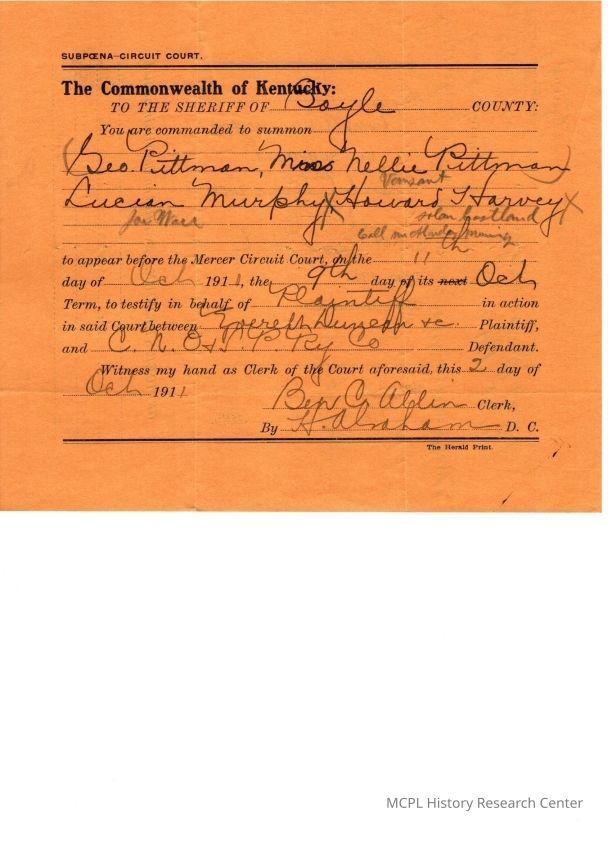 SUBPŒNA—CIRCUIT COURT.
The Commonwealth of Kentucky:
TO THE SHERIFF OF Boyle COUNTY:
You are commanded to summon
(Geo. Pittman, Miss Nellie Pittman)
Vansant
Lucian Murphy X Howard Harvey X
Joe Wase
call me Monday morning
to appear before the Mercer Circuit Court, on the 11th
day of Oct 1911, the 9th day of its next Oct
Term, to testify in behalf of Plaintiff in action
in said Court between Everett Duncan &c. Plaintiff,
and C. N. O & T. P. Ry Co Defendant.
Witness my hand as Clerk of the Court aforesaid, this 2 day of
Oct 1911
Ben C. Allin Clerk,
By H. Abraham D. C.
The Herald Print.
MCPL History Research Center